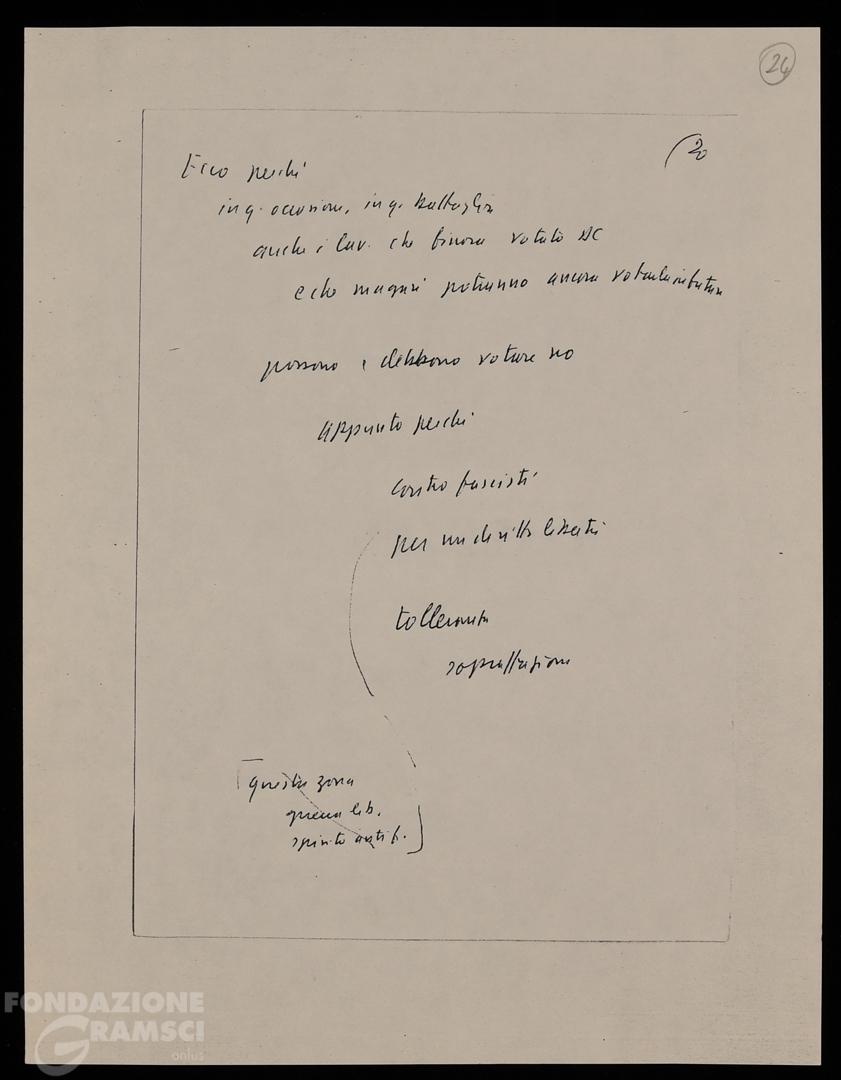 24
20
Ecco perché
in q. occasione, in q. battaglia
anche i lav. che finora votato DC
e che magari potranno ancora votarla in futuro
possono e debbono votare no
appunto perché
contro fascisti
per un diritto libertà
tolleranza
sopraffazione
questa zona
guerra lib.
spirito antif.
FONDAZIONE
GRAMSCI
onlus